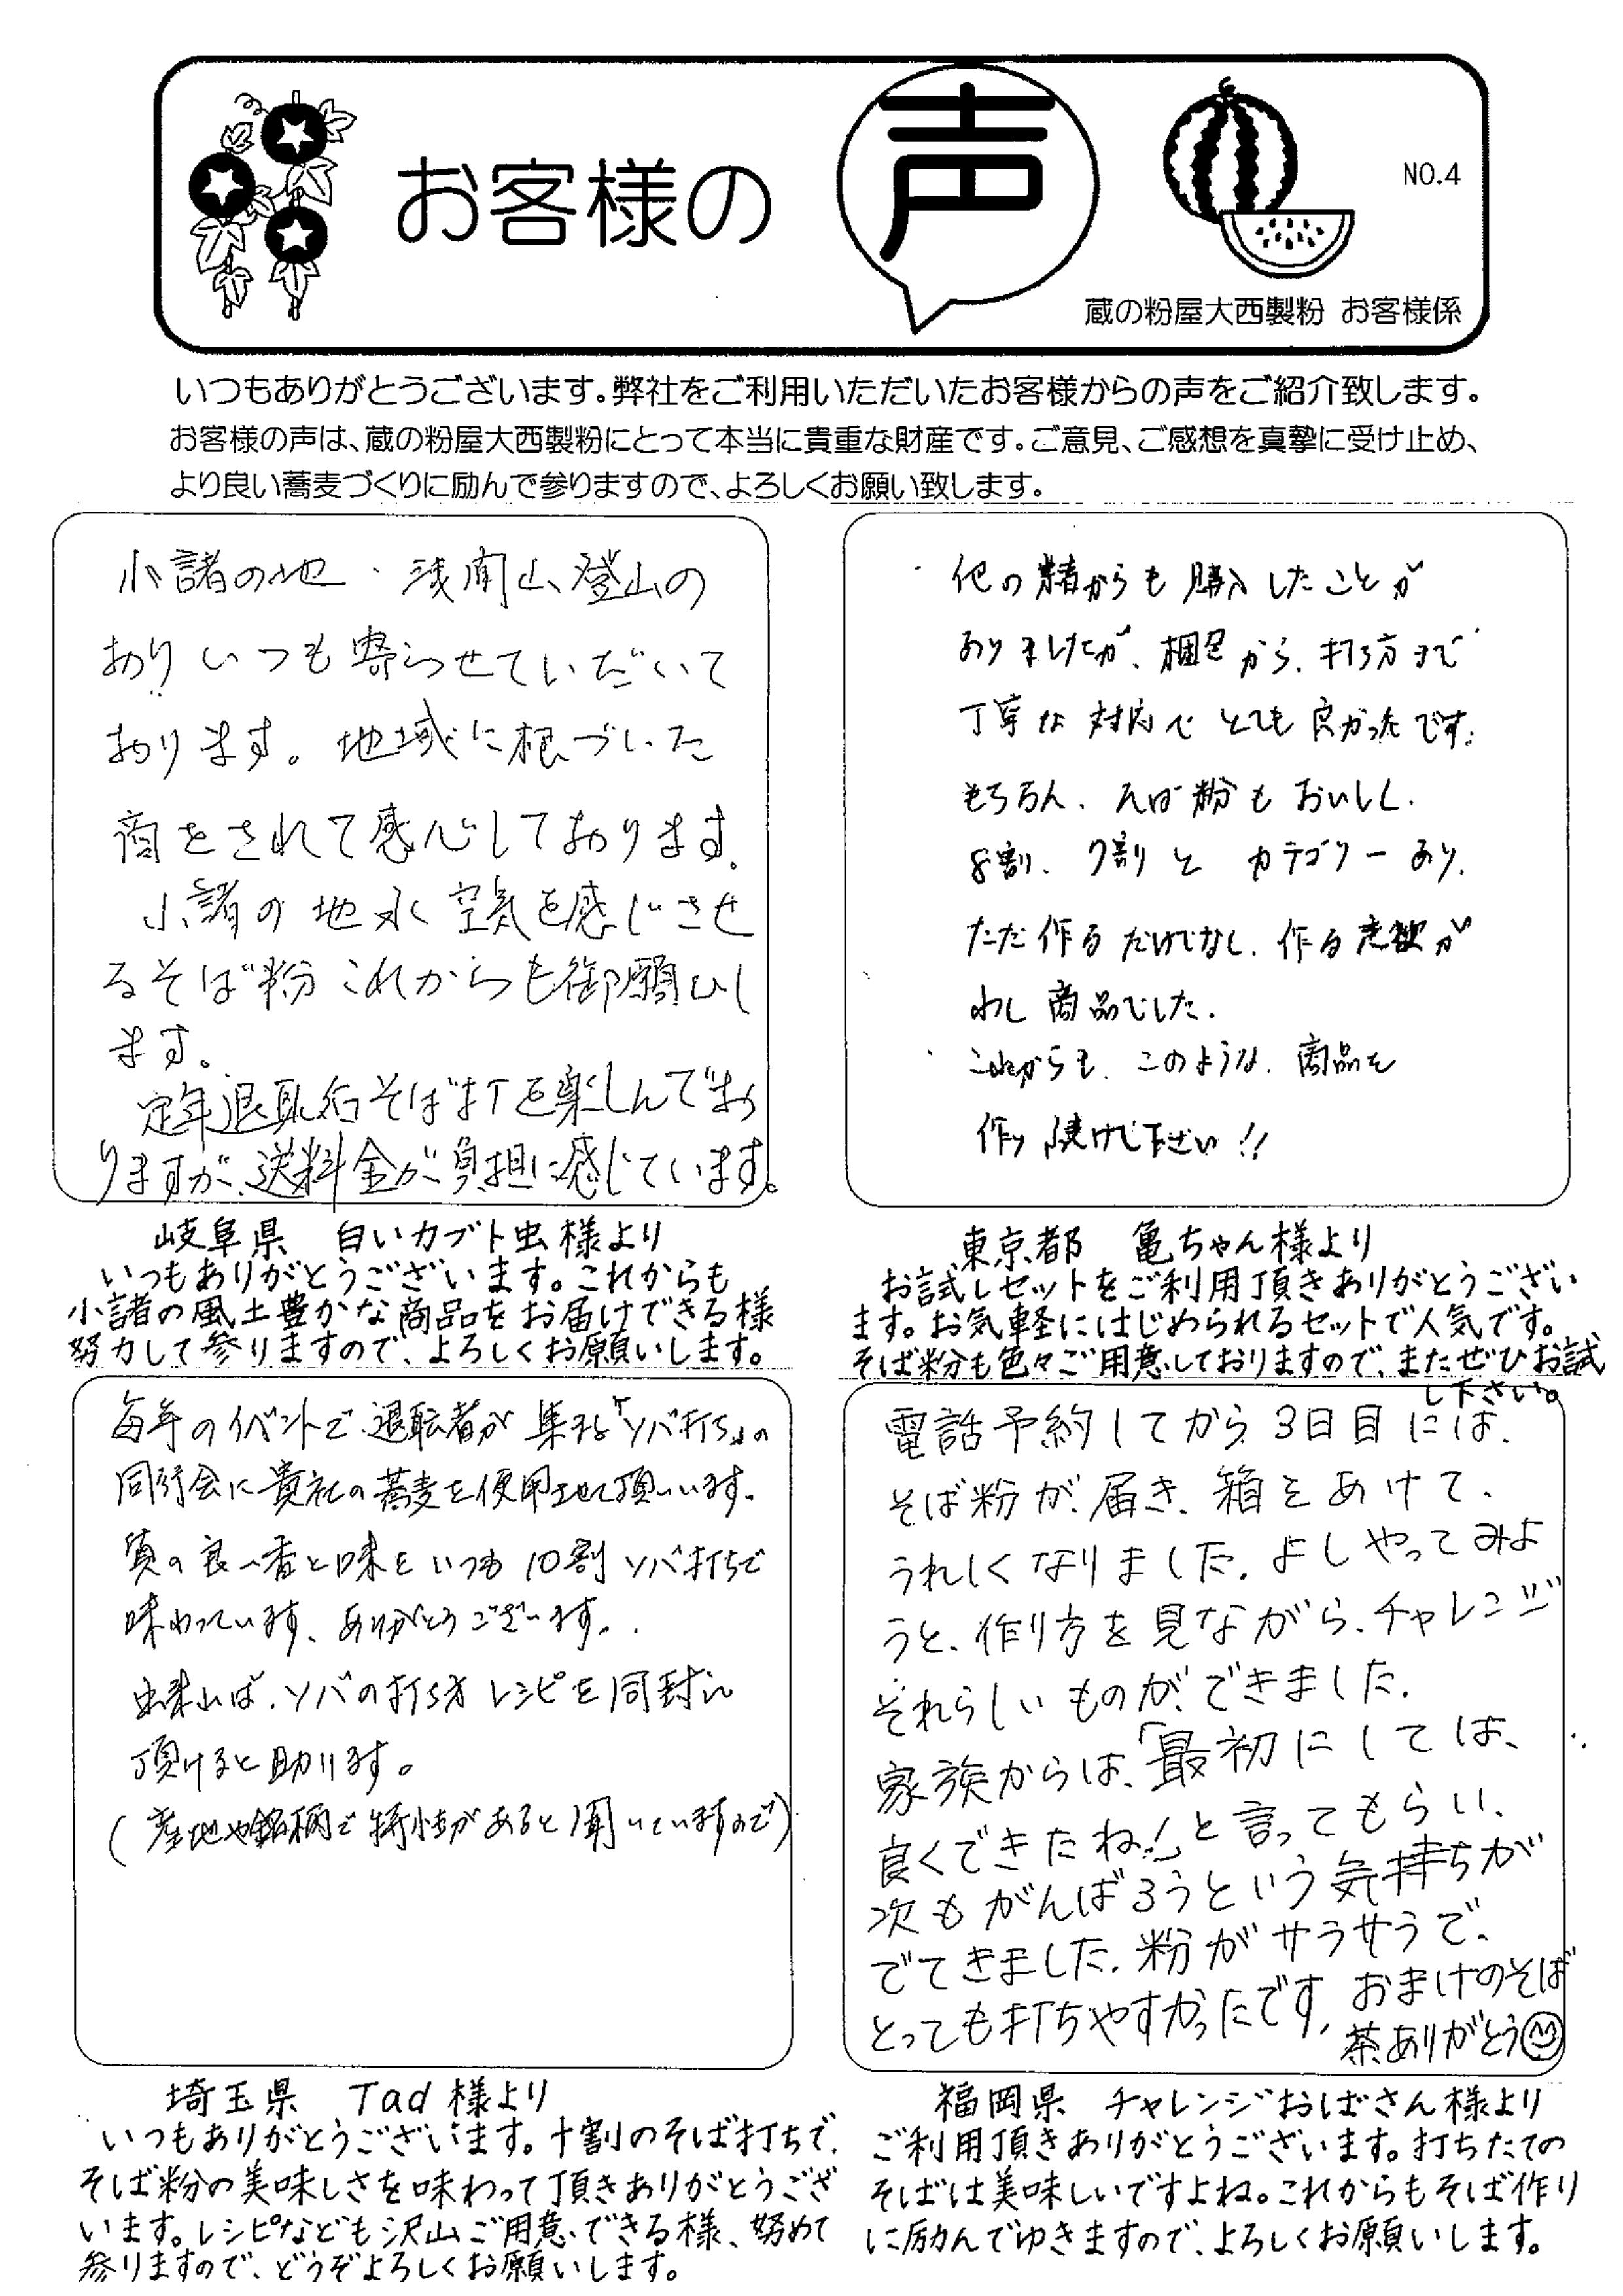 お客様の
声
NO.4
蔵の粉屋大西製粉 お客様係
いつもありがとうございます。弊社をご利用いただいたお客様からの声をご紹介致します。
お客様の声は、蔵の粉屋大西製粉にとって本当に貴重な財産です。ご意見、ご感想を真摯に受け止め、
より良い蕎麦づくりに励んで参りますので、よろしくお願い致します。
小諸の地・浅間山登山の
おりいつも寄らせていだいて
おります。地域に根づいた
商をされて感心しております。
小諸の地水空気を感じさせ
るそば粉これからも御願ひし
ます。
定年退职后そば打を楽しんでお
りますが、送料金が負担に感じています。
岐阜県 白いカブト虫様より
いつもありがとうございます。これからも
小諸の風土豊かな商品をお届けできる様
努力して参りますので、よろしくお願いします。
他の者からも購入したことが
ありましたが、梱包から、打ち方まで
丁寧な対応でとても良かったです。
もちろん、そば粉もおいしく、
8割、7割とカテゴリーあり、
ただ作るだけでなく、作る意欲が
わく商品でした。
これからも、このような、商品を
作り続けて下さい!!
東京都 亀ちゃん様より
お試しセットをご利用頂きありがとうござい
ます。お気軽にはじめられるセットで人気です。
そば粉も色々ご用意しておりますので、またぜひお試
し下さい。
毎年のイベントで退職者が集る「ソバ打ち」の
同行会に貴社の蕎麦を使用させて頂いいます。
質の良い香と味をいつも10割ソバ打ちで
味わっています、ありがとうございます。
出来れば、ソバの打ち方レシピを同封に
頂けると助ります。
(産地や銘柄で特性があると聞いていますので)
埼玉県 Tad様より
いつもありがとうございます。十割のそば打ちで、
そば粉の美味しさを味わって頂きありがとうござ
います。レシピなども沢山ご用意できる様、努めて
参りますので、どうぞよろしくお願いします。
電話予約してから3日目には、
そば粉が、届き、箱をあけて、
うれしくなりました。よしやってみよ
うと、作り方を見ながら、チャレンジ
それらしいものが、できました。
家族からは、「最初にしては、
良くできたね!」と言ってもらい、
次もがんばろうという気持ちが
でてきました。粉がサラサラで、
とっても打ちやすかったです。おまけのそば
茶ありがとう
福岡県 チャレンジおばさん様より
ご利用頂きありがとうございます。打ちたての
そばは美味しいですよね。これからもそば作り
に励んでゆきますので、よろしくお願いします。